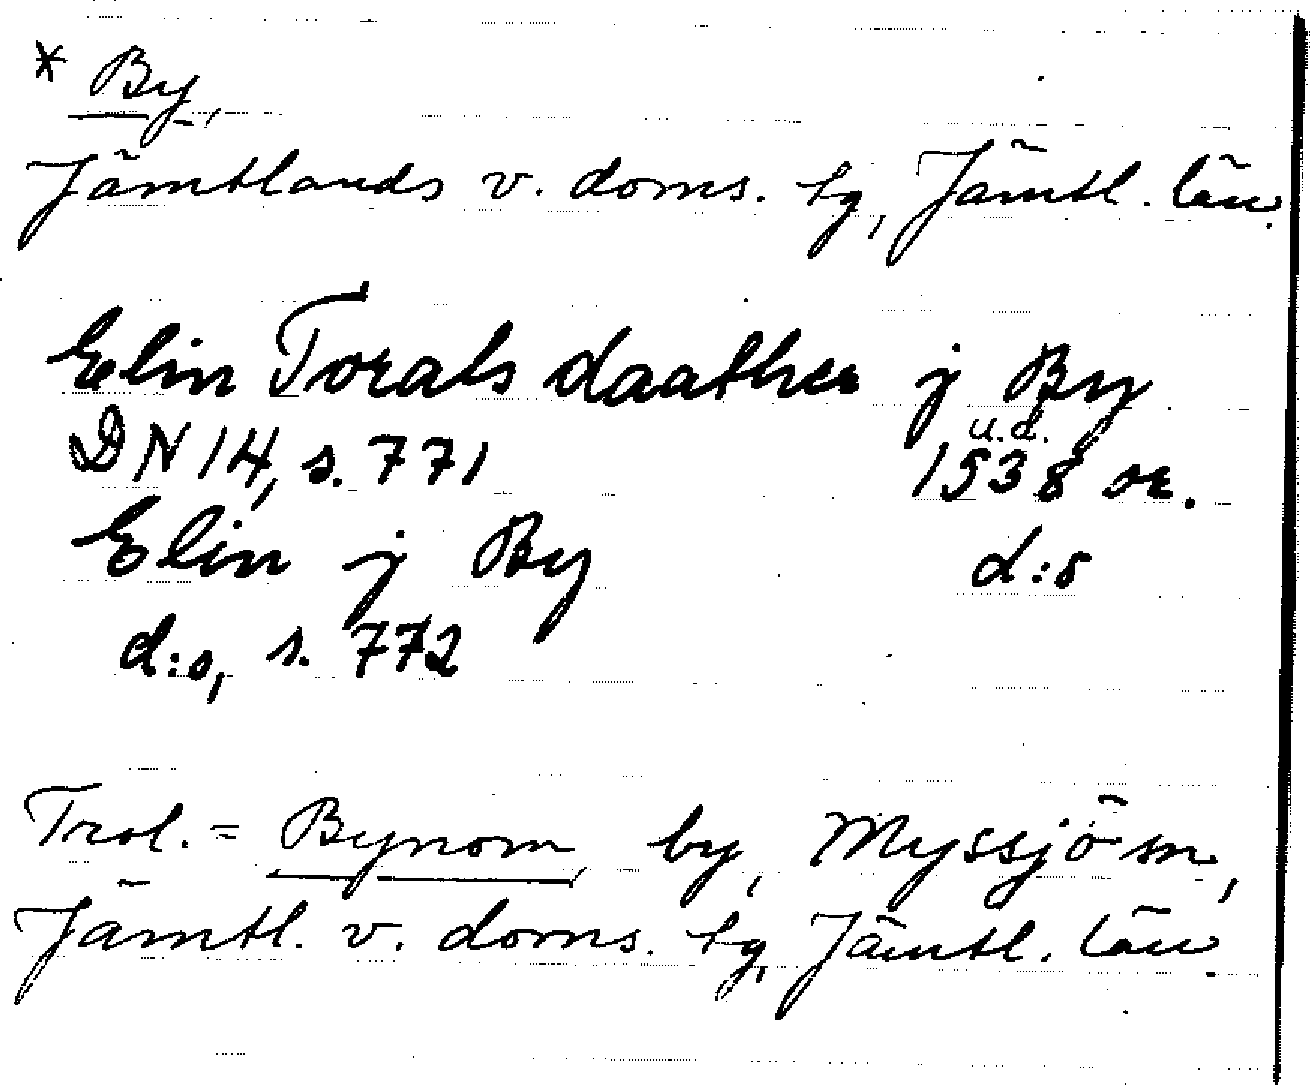 * By,
Jämtlands v. doms. tg, Jämtl. län.
Elin Torals daather j By
u.d.
DN 14, s. 771 1538 or.
Elin j By d:o
d:o, s. 772
Trol. = Bynom by, Myssjö sn,
Jämtl. v. doms. tg, Jämtl. län.